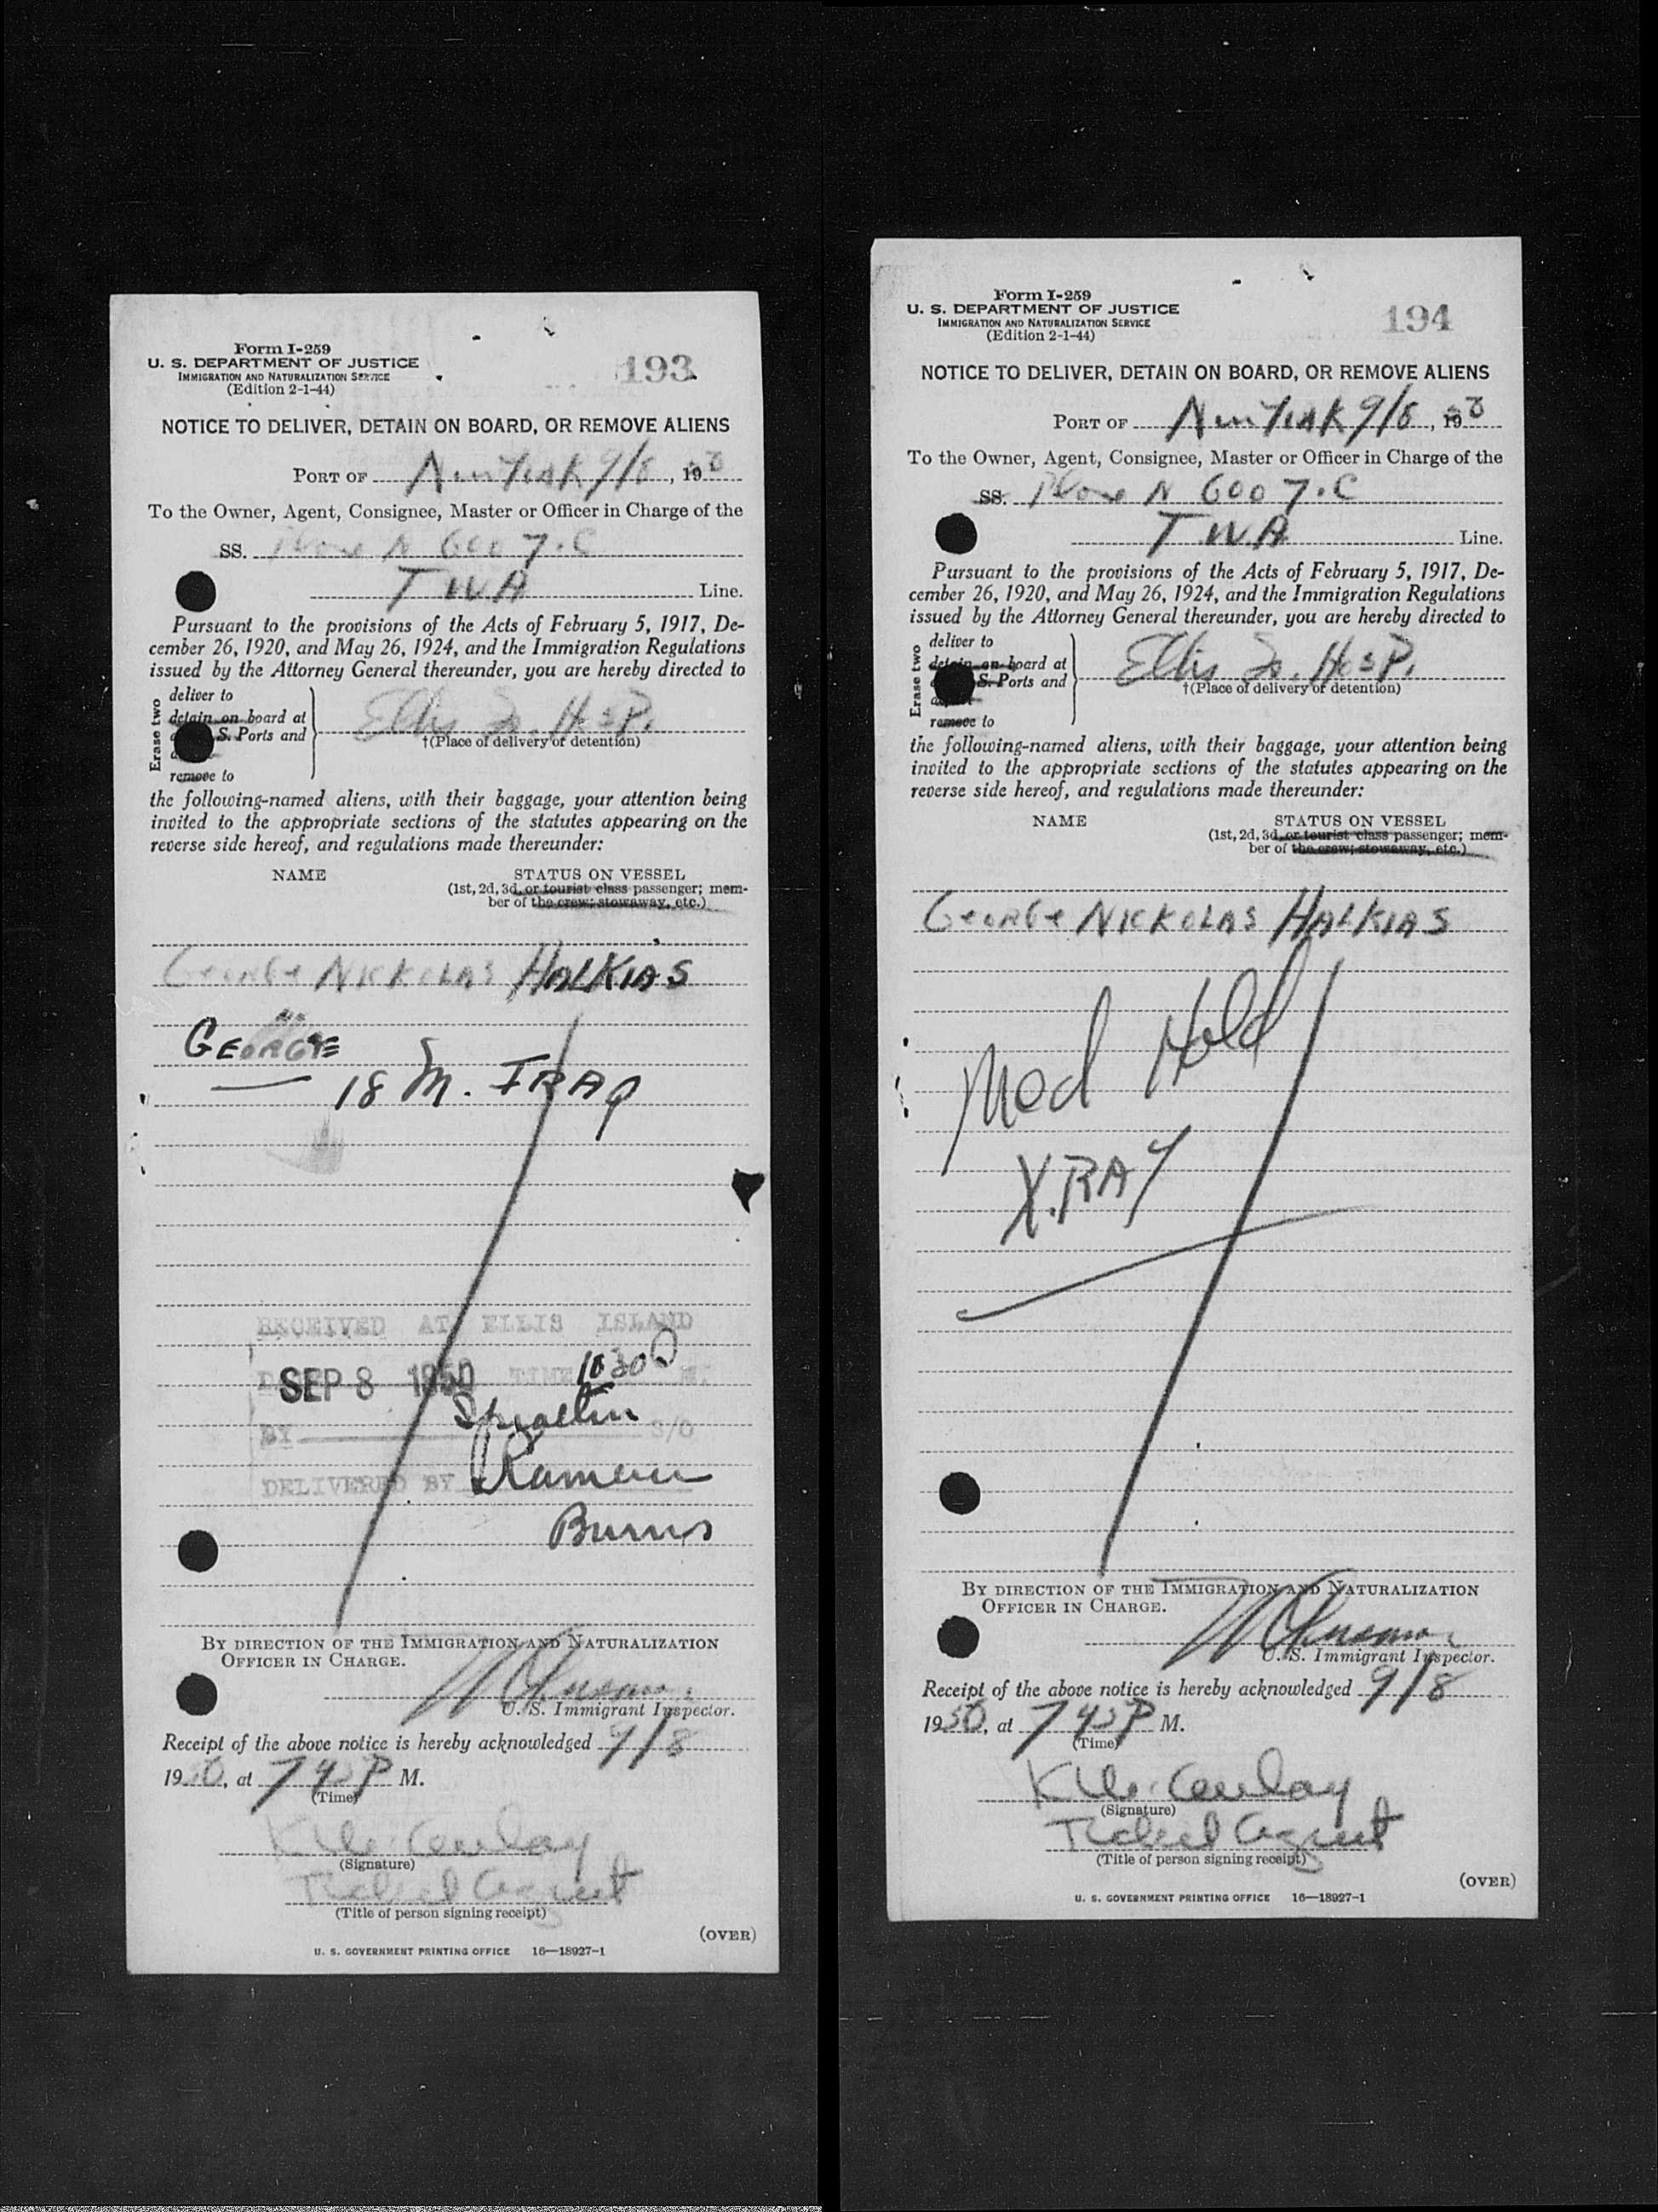 Form I-259
U. S. DEPARTMENT OF JUSTICE
IMMIGRATION AND NATURALIZATION SERVICE
(Edition 2-1-44)
193
NOTICE TO DELIVER, DETAIN ON BOARD, OR REMOVE ALIENS
PORT OF New York 9/8, 1950
To the Owner, Agent, Consignee, Master or Officer in Charge of the
SS. Plane N 6007.C
T W A Line.
Pursuant to the provisions of the Acts of February 5, 1917, De-
cember 26, 1920, and May 26, 1924, and the Immigration Regulations
issued by the Attorney General thereunder, you are hereby directed to
Erase two
deliver to
detain on board at
S. Ports and
remove to
Ellis Is. Hosp.
†(Place of delivery or detention)
the following-named aliens, with their baggage, your attention being
invited to the appropriate sections of the statutes appearing on the
reverse side hereof, and regulations made thereunder:
NAME
STATUS ON VESSEL
(1st, 2d, 3d, or tourist class passenger; mem-
ber of the crew; stowaway, etc.)
GEORGE NICKOLAS HALKIAS
GEORGE
18 M. IRAQ
RECEIVED AT ELLIS ISLAND
SEP 8 1950 TIME 1030 M.
BY S/O
DELIVERED BY
Burns
BY DIRECTION OF THE IMMIGRATION AND NATURALIZATION
OFFICER IN CHARGE.
U. S. Immigrant Inspector.
Receipt of the above notice is hereby acknowledged 9/8
1950, at 7 45 P M.
(Time)
(Signature)
Ticket Agent
(Title of person signing receipt)
(OVER)
U. S. GOVERNMENT PRINTING OFFICE 16—18927-1
Form I-259
U. S. DEPARTMENT OF JUSTICE
IMMIGRATION AND NATURALIZATION SERVICE
(Edition 2-1-44)
194
NOTICE TO DELIVER, DETAIN ON BOARD, OR REMOVE ALIENS
PORT OF New York 9/8, 1950
To the Owner, Agent, Consignee, Master or Officer in Charge of the
SS. Plane N 6007.C
T W A Line.
Pursuant to the provisions of the Acts of February 5, 1917, De-
cember 26, 1920, and May 26, 1924, and the Immigration Regulations
issued by the Attorney General thereunder, you are hereby directed to
Erase two
deliver to
detain on board at
S. Ports and
remove to
Ellis Is. Hosp.
†(Place of delivery or detention)
the following-named aliens, with their baggage, your attention being
invited to the appropriate sections of the statutes appearing on the
reverse side hereof, and regulations made thereunder:
NAME
STATUS ON VESSEL
(1st, 2d, 3d, or tourist class passenger; mem-
ber of the crew; stowaway, etc.)
GEORGE NICKOLAS HALKIAS
Med Hold
X.RAY
BY DIRECTION OF THE IMMIGRATION AND NATURALIZATION
OFFICER IN CHARGE.
U. S. Immigrant Inspector.
Receipt of the above notice is hereby acknowledged 9/8
1950, at 7 45 P M.
(Time)
(Signature)
Ticket Agent
(Title of person signing receipt)
(OVER)
U. S. GOVERNMENT PRINTING OFFICE 16—18927-1